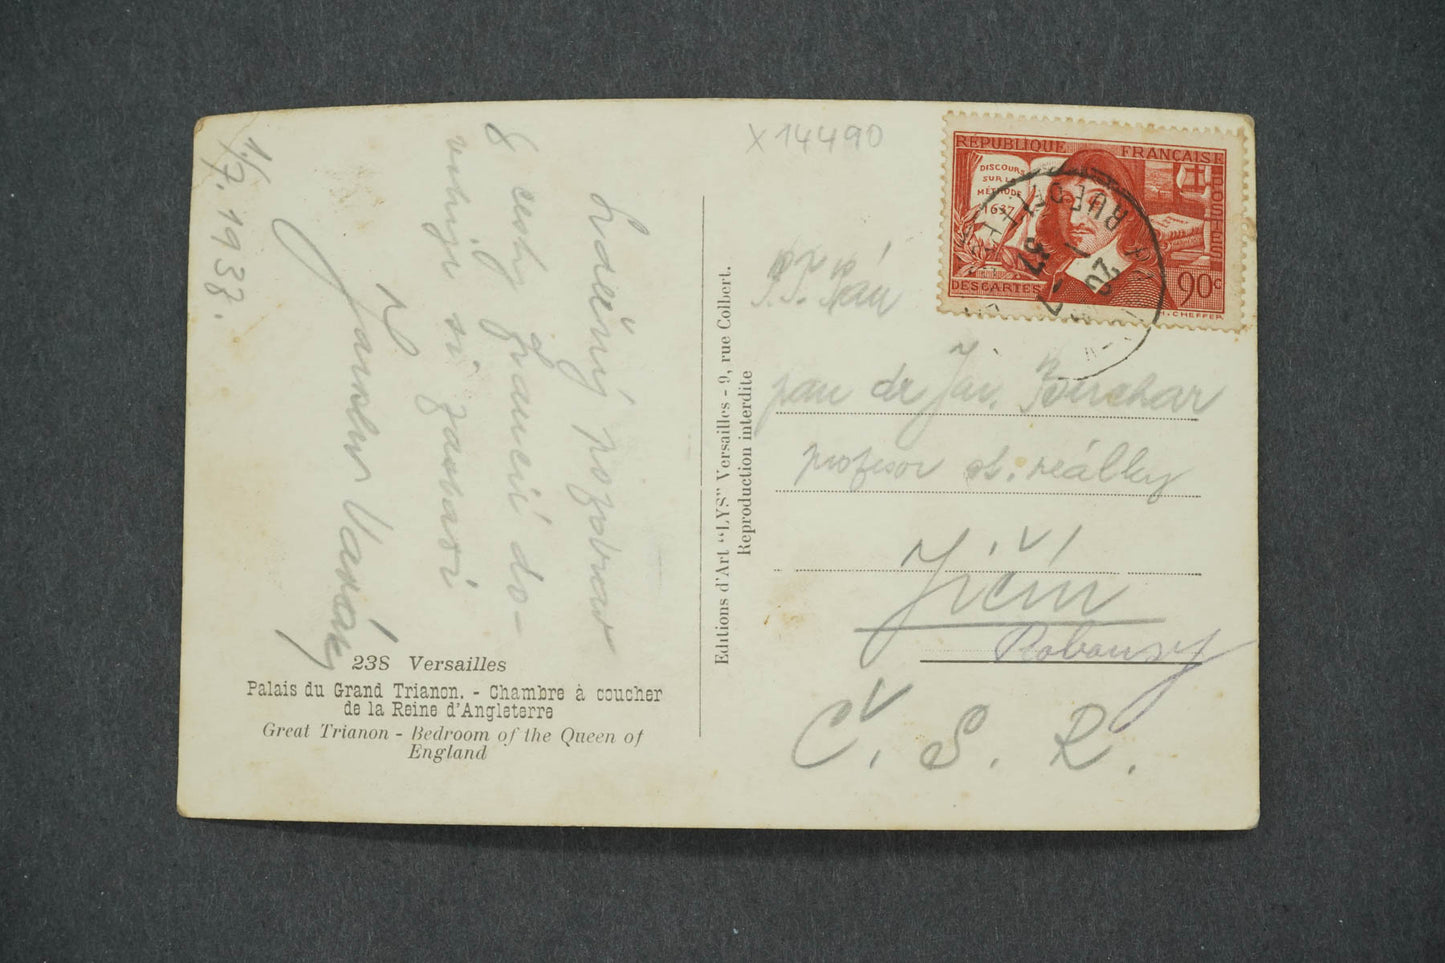 1./7. 1937.
Srdečný pozdrav
z cesty Francií do-
voluje si zaslati
X 14490
RÉPUBLIQUE FRANÇAISE
DISCOURS
SUR LA
MÉTHODE
1637
POSTES
DESCARTES
90c
H. CHEFFER
P.T. Pán
pan dr Jar.
profesor st. reálky
Jičín
Č. S. R.
Editions d'Art "LYS" Versailles - 9, rue Colbert.
Reproduction interdite
23S Versailles
Palais du Grand Trianon. - Chambre à coucher
de la Reine d'Angleterre
Great Trianon - Bedroom of the Queen of
England